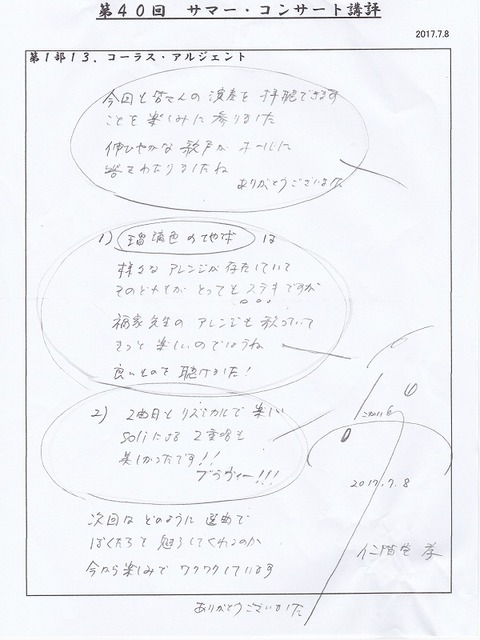 第40回 サマー・コンサート講評
2017.7.8
第1部13. コーラス・アルジェント
今回も皆さんの演奏を拝聴できます
ことを楽しみに参りました
伸びやかな歌声がホールに
響きわたりましたね
ありがとうございました
1) 瑠璃色の地球 は
様々なアレンジが存在していて
そのどれもがとってもステキですが
福家先生のアレンジも歌っていて
きっと楽しいのでしょうね
良いものを聴けました!
2) 2曲目もリズミカルで楽しい
soliによる2重唱も
美しかったです!!
ブラヴィー!!!
次回はどのように選曲で
ぼくたちを魅了してくれるのか
今から楽しみでワクワクしています
ありがとうございました
2017.7.8
仁階堂 孝